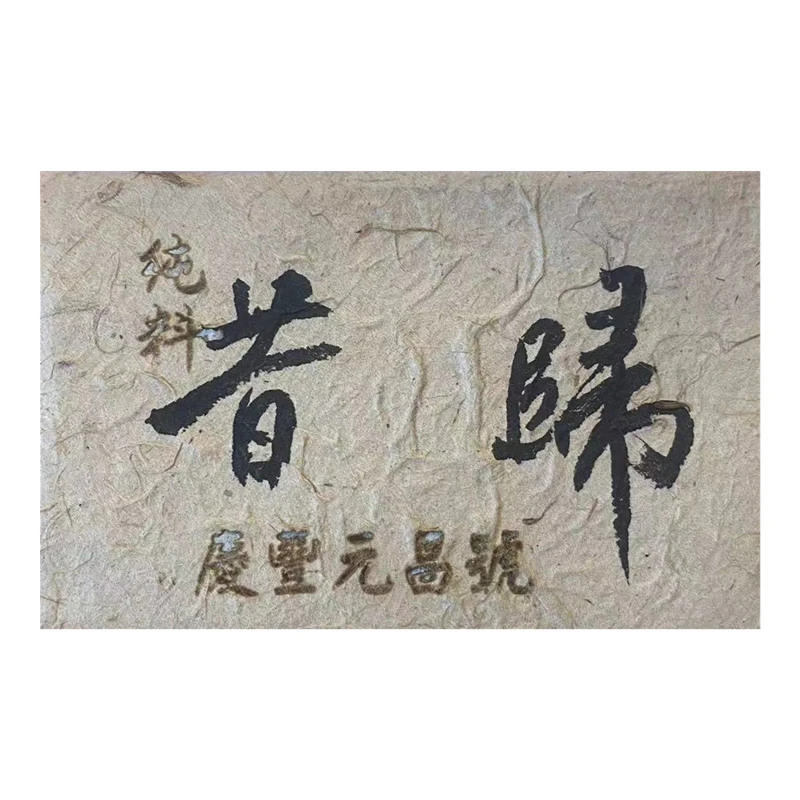 純料
昔歸
慶豐元昌號